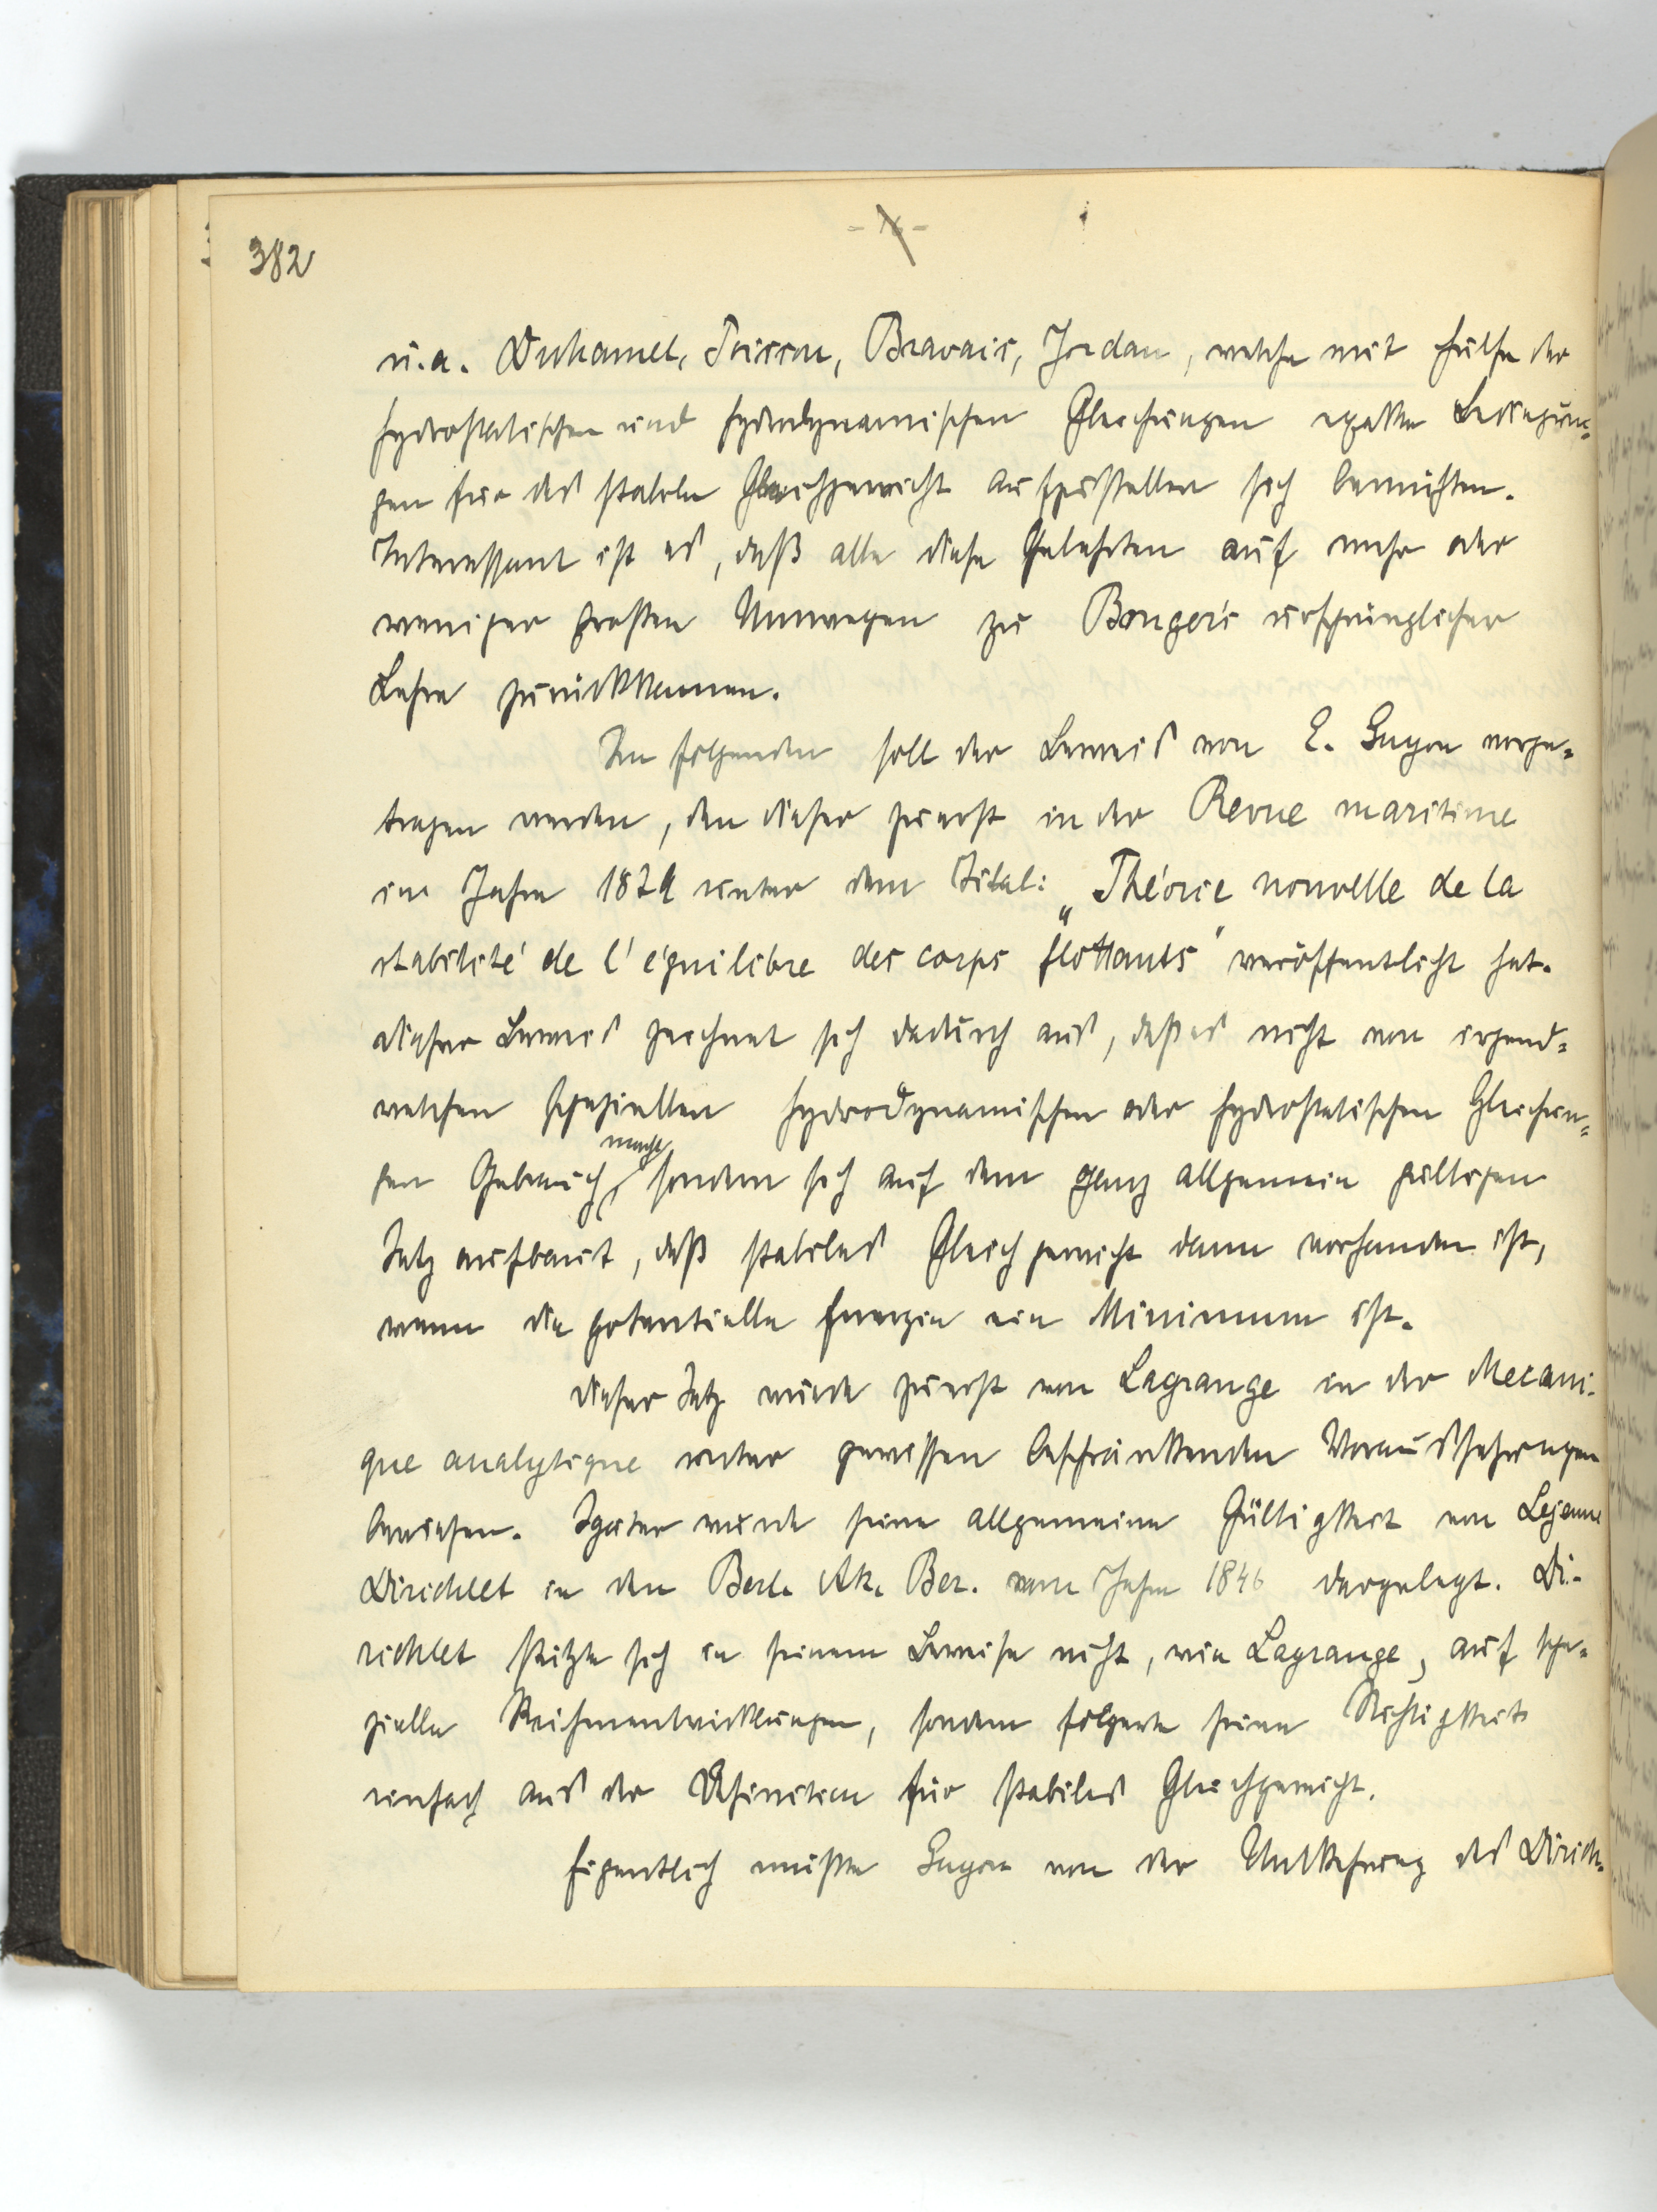 382
u.a. Duhamel, Poisson, Bravais, Jordan, welche mit Hülfe der
hydrostatischen und hydrodynamischen Gleichungen exakte Bedingun=
gen für das stabile Gleichgewicht aufzustellen sich bemühten.
Interessant ist es, daß alle diese Gelehrten auf mehr oder
weniger großen Umwegen zu Bouger's ursprünglicher
Lehre zurückkamen.
Im folgenden soll der Beweis von E. Guyou vorge=
tragen werden, den dieser zuerst in der Revue maritime
im Jahre 1879 unter dem Titel: „Théorie nouvelle de la
stabilité de l'équilibre des corps flottants" veröffentlicht hat.
Dieser Beweis zeichnet sich dadurch aus, daß es nicht von irgend=
welchen speziellen hydrodynamischen oder hydrostatischen Gleichun=
gen Gebrauch macht, sondern sich auf dem ganz allgemein gültigen
Satz aufbaut, daß stabiles Gleichgewicht dann vorhanden ist,
wenn die potentielle Energie ein Minimum ist.
Dieser Satz wurde zuerst von Lagrange in der Mecani-
que analytique unter gewissen beschränkenden Voraussetzungen
bewiesen. Später wurde seine allgemeine Gültigkeit von Lejeune
Dirichlet in den Berl. Ak. Ber. vom Jahre 1846 dargelegt. Di-
richlet stützte sich in seinem Beweise nicht, wie Lagrange, auf spe=
zielle Reihenentwicklungen, sondern folgerte seine Richtigkeit
einfach aus der Definition für stabiles Gleichgewicht.
Eigentlich müßte Guyou von der Umkehrung des Dirich=